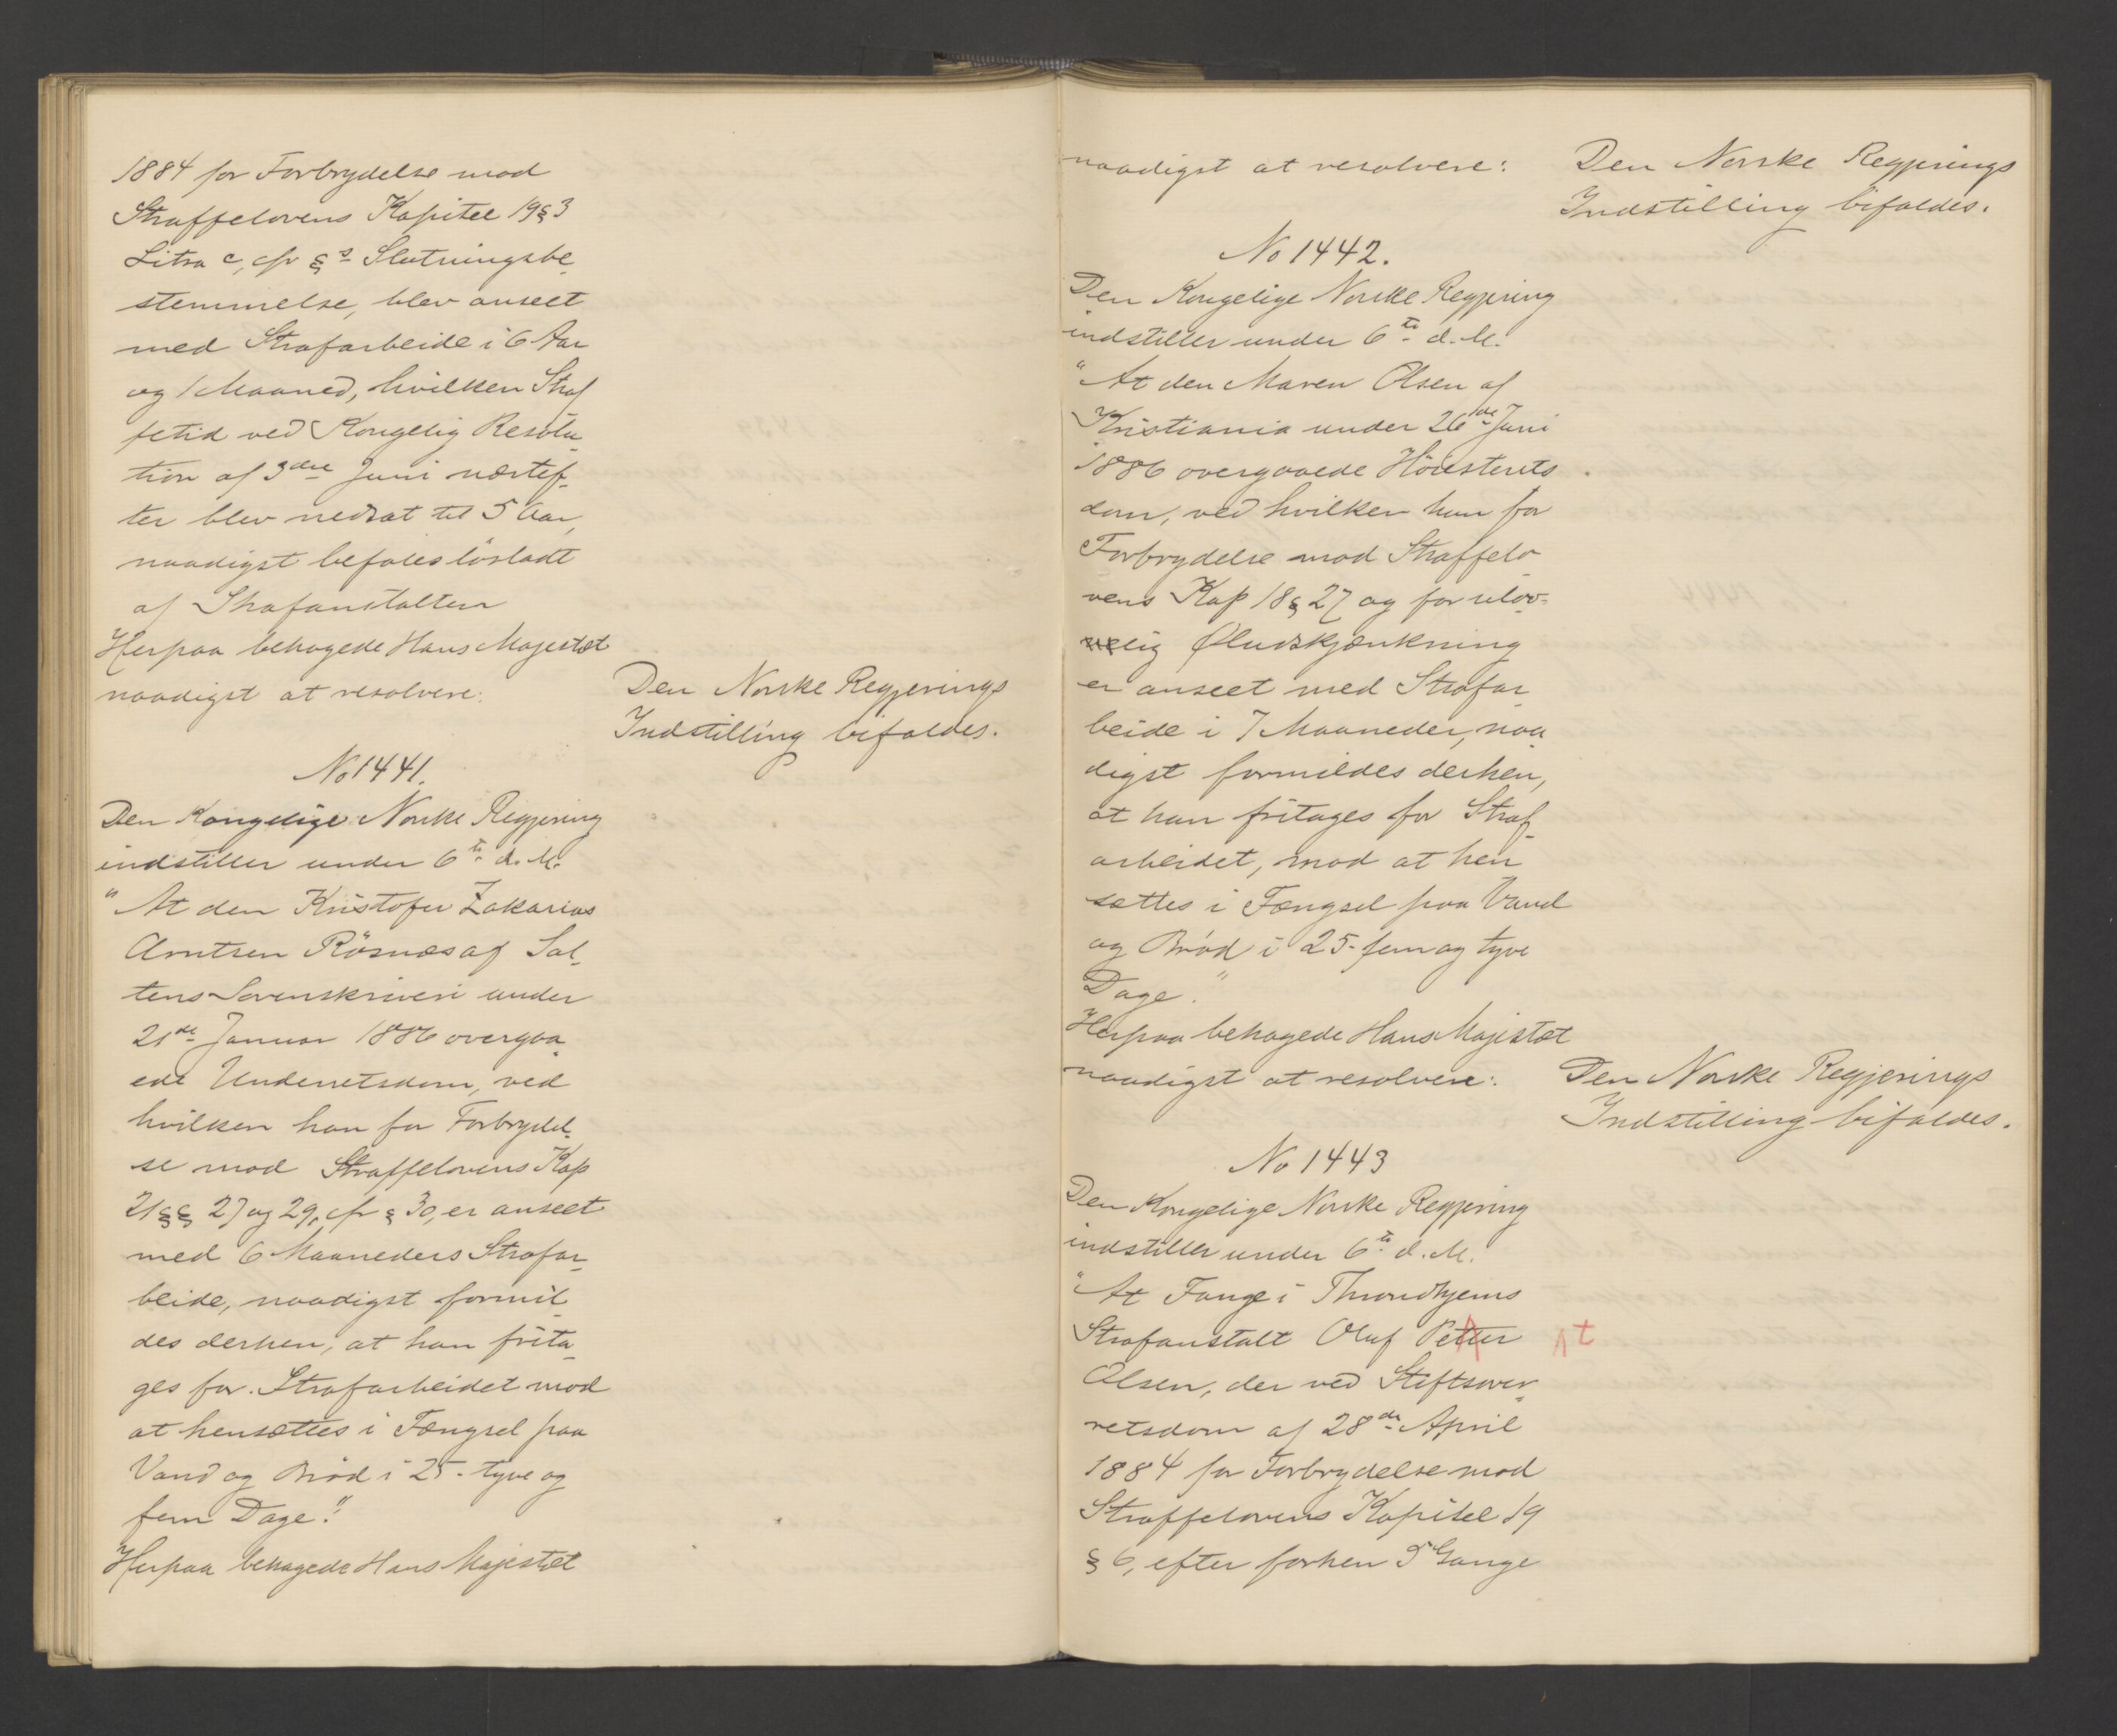 1884 for Forbrydelse mod
Straffelovens Kapitel 19 § 3
Litra c, cfr §s Slutningsbe-
stemmelse, blev anseet
med Strafarbeide i 6 Aar
og 1 Maaned, hvilken Straf
fetid ved Kongelig Resolu-
tion af 3die Juni næstef-
ter blev nedsat til 5 Aar,
naadigst befales løsladt
af Strafanstalten
Herpaa behagede Hans Majestæt
naadigst at resolvere:
Den Norske Regjerings
Indstilling bifaldes.
No 1441.
Den Kongelige Norske Regjering
indstiller under 6te d. M.
"At den Kristofer Zakarias
Arntsen Rösnæs af Sal-
tens Sorenskriveri under
21de Januar 1886 overgaa-
ede Underretsdom, ved
hvilken han for Forbrydel-
se mod Straffelovens Kap
21 §§ 27 og 29, cfr § 30, er anseet
med 6 Maaneders Strafar-
beide, naadigst formil-
des derhen, at han frita-
ges for Strafarbeidet mod
at hensættes i Fængsel paa
Vand og Bröd i 25 - tyve og
fem Dage."
Herpaa behagede Hans Majestæt
naadigst at resolvere:
Den Norske Regjerings
Indstilling bifaldes.
No 1442.
Den Kongelige Norske Regjering
indstiller under 6te d. M.
"At den Maren Olsen af
Kristiania under 26de Juni
1886 overgaaede Höiesterets
dom, ved hvilken hun for
Forbrydelse mod Straffelo-
vens Kap 18 § 27 og for ulov-
lig Øludskjænkning
er anseet med Strafar-
beide i 7 Maaneder, naa-
digst formildes derhen,
at hun fritages for Straf-
arbeidet, mod at hen
sættes i Fængsel paa Vand
og Bröd i 25 - fem og tyve
Dage."
Herpaa behagede Hans Majestæt
naadigst at resolvere:
Den Norske Regjerings
Indstilling bifaldes.
No 1443
Den Kongelige Norske Regjering
indstiller under 6te d. M.
"At Fange i Throndhjems
Strafanstalt Oluf Petter t
Olsen, der ved Stiftsover-
retsdom af 28de April
1884 for Forbrydelse mod
Straffelovens Kapitel 19
§ 6, efter forhen 5 Gange